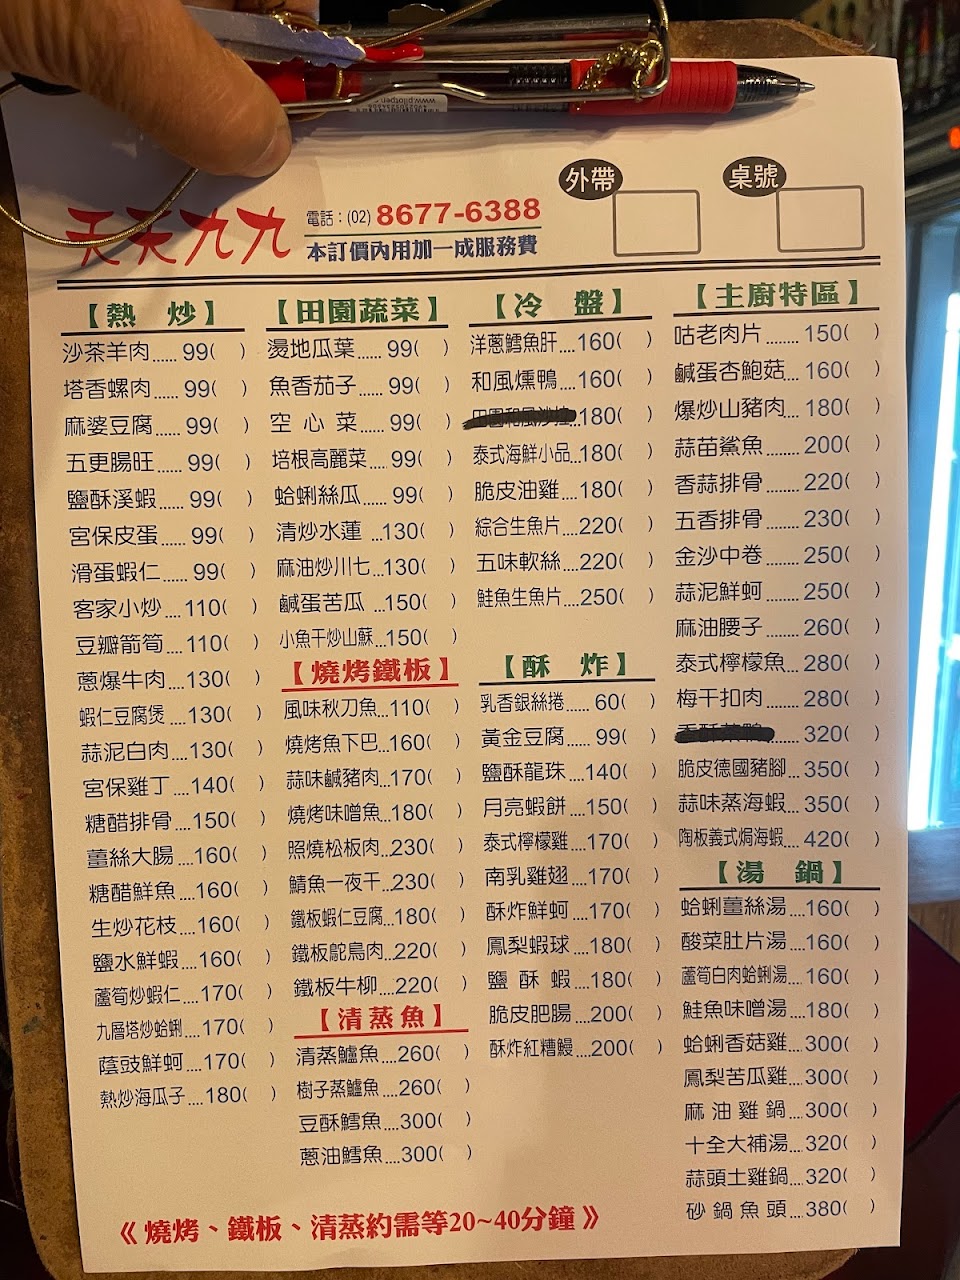 天天九九
電話:(02) 8677-6388
本訂價內用加一成服務費
外帶
桌號
【熱 炒】
沙茶羊肉......99( )
塔香螺肉......99( )
麻婆豆腐......99( )
五更腸旺......99( )
鹽酥溪蝦......99( )
宮保皮蛋......99( )
滑蛋蝦仁......99( )
客家小炒....110( )
豆瓣箭筍....110( )
蔥爆牛肉....130( )
蝦仁豆腐煲....130( )
蒜泥白肉....130( )
宮保雞丁....140( )
糖醋排骨....150( )
薑絲大腸....160( )
糖醋鮮魚....160( )
生炒花枝....160( )
鹽水鮮蝦....160( )
蘆筍炒蝦仁....170( )
九層塔炒蛤蜊....170( )
蔭豉鮮蚵....170( )
熱炒海瓜子....180( )
【田園蔬菜】
燙地瓜葉......99( )
魚香茄子......99( )
空 心 菜......99( )
培根高麗菜....99( )
蛤蜊絲瓜......99( )
清炒水蓮 ...130( )
麻油炒川七...130( )
鹹蛋苦瓜 ...150( )
小魚干炒山蘇...150( )
【燒烤鐵板】
風味秋刀魚...110( )
燒烤魚下巴...160( )
蒜味鹹豬肉...170( )
燒烤味噌魚...180( )
照燒松板肉...230( )
鯖魚一夜干...230( )
鐵板蝦仁豆腐...180( )
鐵板鴕鳥肉...220( )
鐵板牛柳....220( )
【清蒸魚】
清蒸鱸魚....260( )
樹子蒸鱸魚....260( )
豆酥鱈魚....300( )
蔥油鱈魚....300( )
【冷 盤】
洋蔥鱈魚肝....160( )
和風燻鴨....160( )
180( )
泰式海鮮小品...180( )
脆皮油雞....180( )
綜合生魚片....220( )
五味軟絲....220( )
鮭魚生魚片....250( )
【酥 炸】
乳香銀絲捲...... 60( )
黃金豆腐...... 99( )
鹽酥龍珠....140( )
月亮蝦餅....150( )
泰式檸檬雞....170( )
南乳雞翅....170( )
酥炸鮮蚵....170( )
鳳梨蝦球....180( )
鹽 酥 蝦....180( )
脆皮肥腸....200( )
酥炸紅糟鰻....200( )
【主廚特區】
咕老肉片........150( )
鹹蛋杏鮑菇....160( )
爆炒山豬肉....180( )
蒜苗鯊魚........200( )
香蒜排骨........220( )
五香排骨........230( )
金沙中卷........250( )
蒜泥鮮蚵........250( )
麻油腰子........260( )
泰式檸檬魚....280( )
梅干扣肉........280( )
320( )
脆皮德國豬腳....350( )
蒜味蒸海蝦....350( )
陶板義式焗海蝦.... 420( )
【湯 鍋】
蛤蜊薑絲湯....160( )
酸菜肚片湯....160( )
蘆筍白肉蛤蜊湯....160( )
鮭魚味噌湯....180( )
蛤蜊香菇雞....300( )
鳳梨苦瓜雞....300( )
麻 油 雞 鍋....300( )
十全大補湯....320( )
蒜頭土雞鍋....320( )
砂 鍋 魚 頭....380( )
《 燒烤、鐵板、清蒸約需等20~40分鐘 》